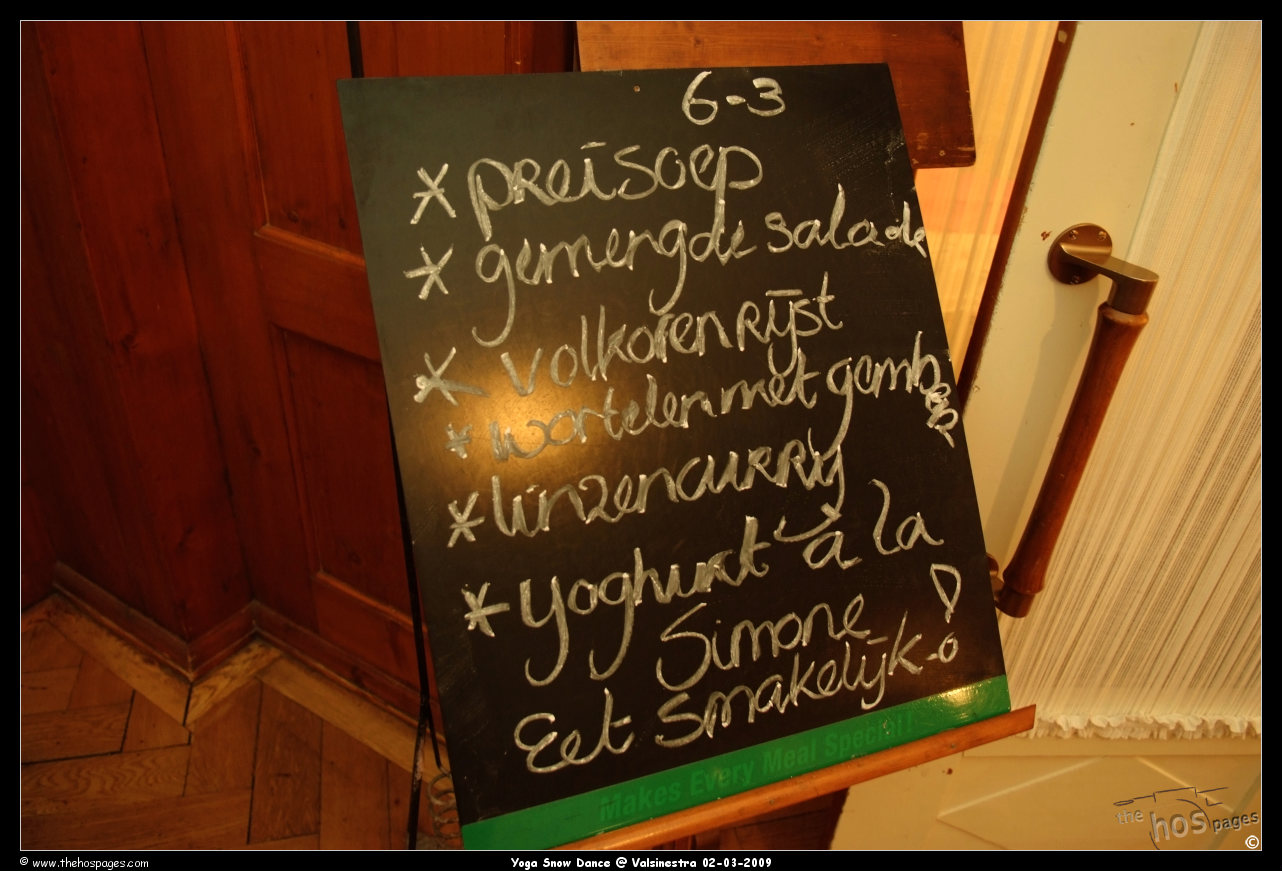 6-3
* preisoep
* gemengde salade
* volkoren rijst
* wortelen met gember
* linzencurry
* Yoghurt à la
Simone
Eet smakelijk!
Makes Every Meal Special!
the hos pages
©
© www.thehospages.com
Yoga Snow Dance @ Valsinestra 02-03-2009